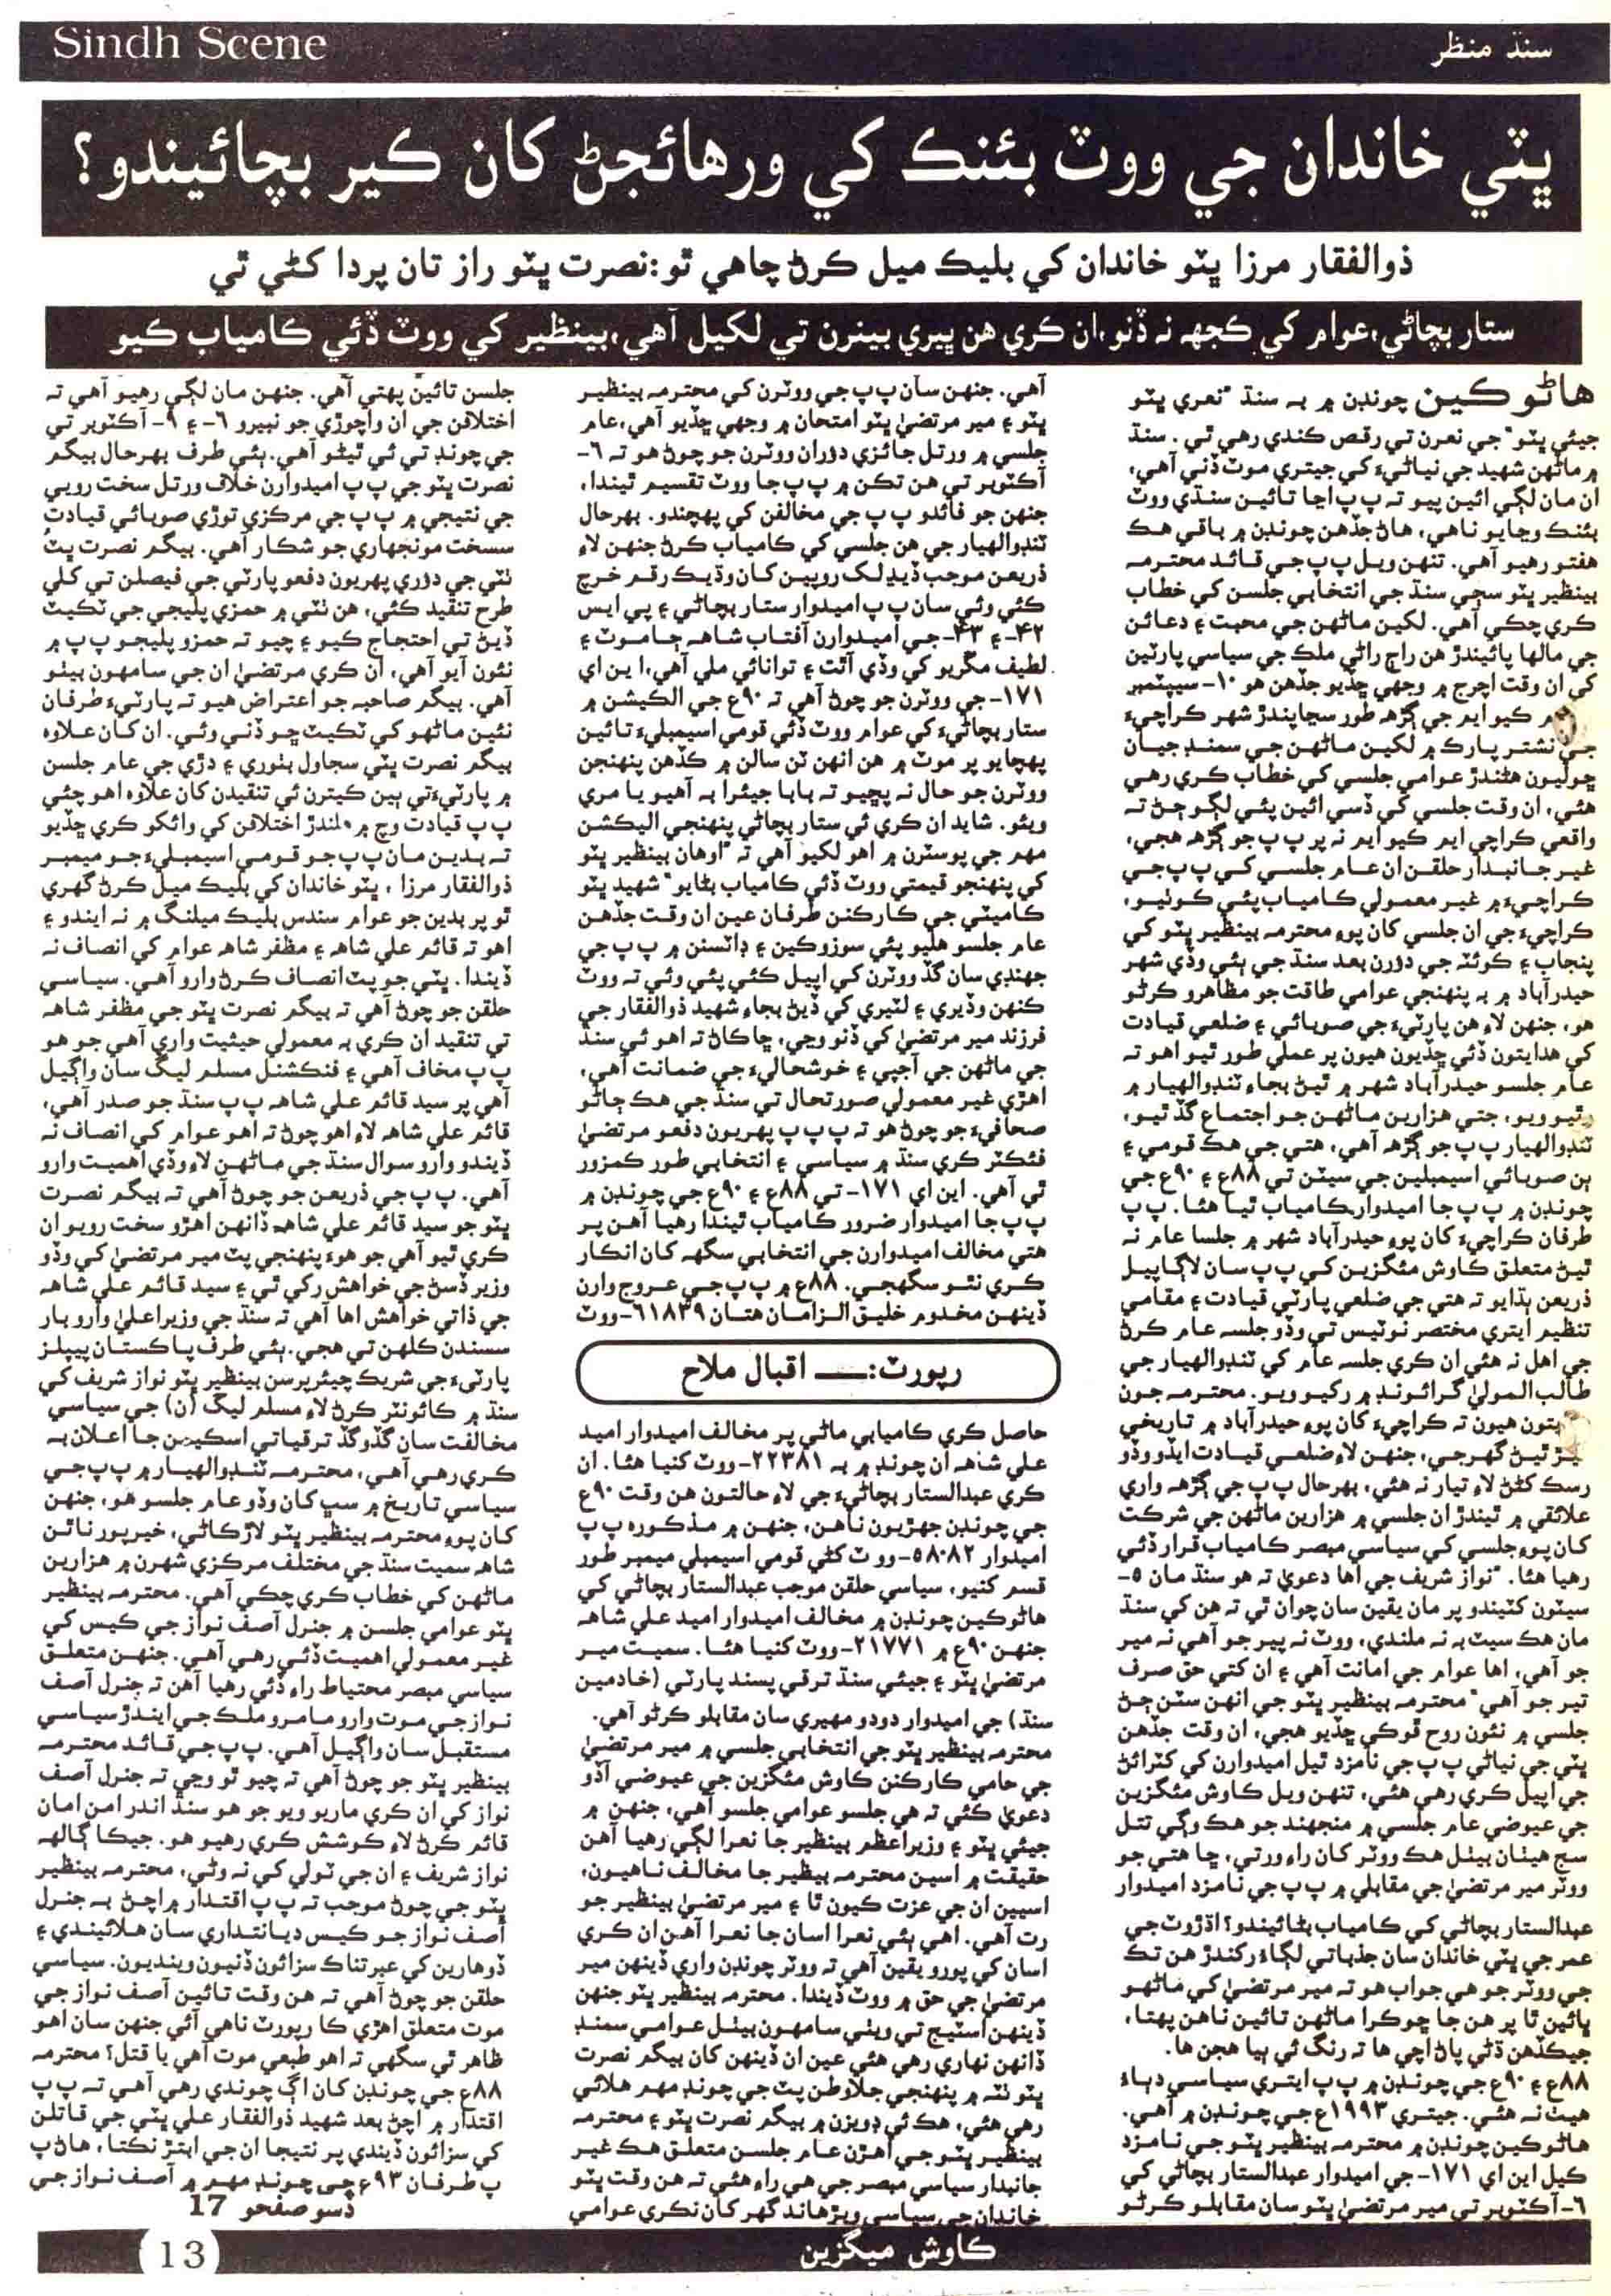 Sindh Scene
سنڌ منظر
ڀٽي خاندان جي ووٽ بئنڪ کي ورهائجڻ کان ڪير بچائيندو؟
ذوالفقار مرزا ڀٽو خاندان کي بليڪ ميل ڪرڻ چاهي ٿو:نصرت ڀٽو راز تان پردا کڻي ٿي
ستار بچاڻي،عوام کي ڪجهہ نہ ڏنو،ان ڪري هن ڀيري بينرن تي لکيل آهي،بينظير کي ووٽ ڏئي ڪامياب ڪيو
هاڻوڪين چونڊن ۾ بہ سنڌ "نعري ڀٽو
جيئي ڀٽو" جي نعرن تي رقص ڪندي رهي ٿي. سنڌ
۾ ماڻهن شهيد جي نياڻيءَ کي جيتري موٽ ڏني آهي،
ان مان لڳي ائين پيو تہ پ پ اڃا تائين سنڌي ووٽ
بئنڪ وڃايو ناهي، هاڻ جڏهن چونڊن ۾ باقي هڪ
هفتو رهيو آهي. تنهن ويل پ پ جي قائد محترمہ
بينظير ڀٽو سڄي سنڌ جي انتخابي جلسن کي خطاب
ڪري چڪي آهي. لکين ماڻهن جي محبت ۽ دعائن
جي مالها پائيندڙ هن راڄ راڻي ملڪ جي سياسي پارٽين
کي ان وقت اچرج ۾ وجهي ڇڏيو جڏهن هو ١٠- سيپٽمبر
ڪيو ايم جي ڳڙهہ طور سڃاپندڙ شهر ڪراچيءَ
جي نشتر پارڪ ۾ لکين ماڻهن جي سمنڊ جيان
ڇوليون هڻندڙ عوامي جلسي کي خطاب ڪري رهي
هئي، ان وقت جلسي کي ڏسي ائين پئي لڳو ڄڻ تہ
واقعي ڪراچي ايم ڪيو ايم نہ پر پ پ جو ڳڙهہ هجي،
غير جانبدار حلقن ان عام جلسي کي پ پ جي
ڪراچيءَ ۾ غير معمولي ڪامياب پئي ڪوٺيو،
ڪراچيءَ جي ان جلسي کان پوءِ محترمہ بينظير ڀٽو کي
پنجاب ۽ ڪوئٽہ جي دؤرن بعد سنڌ جي ٻئي وڏي شهر
حيدرآباد ۾ بہ پنهنجي عوامي طاقت جو مظاهرو ڪرڻو
هو، جنهن لاءِ هن پارٽيءَ جي صوبائي ۽ ضلعي قيادت
کي هدايتون ڏئي ڇڏيون هيون پر عملي طور ٿيو اهو تہ
عام جلسو حيدرآباد شهر ۾ ٿيڻ بجاءِ ٽنڊوالهيار ۾
رٿيو ويو، جتي هزارين ماڻهن جو اجتماع گڏ ٿيو،
ٽنڊوالهيار پ پ جو ڳڙهہ آهي، هتي جي هڪ قومي ۽
ٻن صوبائي اسيمبلين جي سيٽن تي ٨٨ع ۽ ٩٠ع جي
چونڊن ۾ پ پ جا اميدوار ڪامياب ٿيا هئا. پ پ
طرفان ڪراچيءَ کان پوءِ حيدرآباد شهر ۾ جلسا عام نہ
ٿيڻ متعلق ڪاوش مئگزين کي پ پ سان لاڳاپيل
ذريعن ٻڌايو تہ هتي جي ضلعي پارٽي قيادت ۽ مقامي
تنظيم ايتري مختصر نوٽيس تي وڏو جلسہ عام ڪرڻ
جي اهل نہ هئي ان ڪري جلسہ عام کي ٽنڊوالهيار جي
طالب المولىٰ گرائونڊ ۾ رکيو ويو. محترمہ جون
هيون تہ ڪراچيءَ کان پوءِ حيدرآباد ۾ تاريخي
ٿيڻ گهرجي، جنهن لاءِ ضلعي قيادت ايڏو وڏو
رسڪ کڻڻ لاءِ تيار نہ هئي، بهرحال پ پ جي ڳڙهہ واري
علائقي ۾ ٿيندڙ ان جلسي ۾ هزارين ماڻهن جي شرڪت
کان پوءِ جلسي کي سياسي مبصر ڪامياب قرار ڏئي
رهيا هئا. "نواز شريف جي اها دعويٰ تہ هو سنڌ مان ٥-
سيٽون کٽيندو پر مان يقين سان چوان ٿي تہ هن کي سنڌ
مان هڪ سيٽ بہ نہ ملندي، ووٽ نہ پير جو آهي نہ مير
جو آهي، اها عوام جي امانت آهي ۽ ان کتي حق صرف
تير جو آهي" محترمہ بينظير ڀٽو جي انهن سٽن ڄڻ
جلسي ۾ نئون روح ڦوڪي ڇڏيو هجي، ان وقت جڏهن
ڀٽي جي نياڻي پ پ جي نامزد ٿيل اميدوارن کي کٽرائڻ
جي اپيل ڪري رهي هئي، تنهن ويل ڪاوش مئگزين
جي عيوضي عام جلسي ۾ منجهند جو هڪ وڳي تتل
سج هيٺان بيٺل هڪ ووٽر کان راءِ ورتي، ڇا هتي جو
ووٽر مير مرتضيٰ جي مقابلي ۾ پ پ جي نامزد اميدوار
عبدالستار بچاڻي کي ڪامياب بڻائيندو؟ اڌڙوٽ جي
عمر جي ڀٽي خاندان سان جذباتي لڳاءُ رکندڙ هن تڪ
جي ووٽر جو هي جواب هو تہ مير مرتضيٰ کي ماڻهو
ڀائين ٿا پر هن جا ڇوڪرا ماڻهن تائين ناهن پهتا،
جيڪڏهن ڌڻي پاڻ اچي ها تہ رنگ ئي ٻيا هجن ها.
٨٨ع ۽ ٩٠ع جي چونڊن ۾ پ پ ايتري سياسي دٻاءُ
هيٺ نہ هئي. جيتري ١٩٩٣ع جي چونڊن ۾ آهي.
هاڻوڪين چونڊن ۾ محترمہ بينظير ڀٽو جي نامزد
ڪيل اين اي ١٧١- جي اميدوار عبدالستار بچاڻي کي
٦- آڪٽوبر تي مير مرتضيٰ ڀٽو سان مقابلو ڪرڻو
آهي. جنهن سان پ پ جي ووٽرن کي محترمہ بينظير
ڀٽو ۽ مير مرتضيٰ ڀٽو امتحان ۾ وجهي ڇڏيو آهي،عام
جلسي ۾ ورتل جائزي دؤران ووٽرن جو چوڻ هو تہ ٦-
آڪٽوبر تي هن تڪن ۾ پ پ جا ووٽ تقسيم ٿيندا،
جنهن جو فائدو پ پ جي مخالفن کي پهچندو. بهرحال
ٽنڊوالهيار جي هن جلسي کي ڪامياب ڪرڻ جنهن لاءِ
ذريعن موجب ڏيڍ لک روپين کان وڌيڪ رقم خرچ
ڪئي وئي سان پ پ اميدوار ستار بچاڻي ۽ پي ايس
٤٢- ۽ ٤٣- جي اميدوارن آفتاب شاهہ ڄاموٽ ۽
لطيف مگريو کي وڏي آٿت ۽ توانائي ملي آهي،اين اي
١٧١- جي ووٽرن جو چوڻ آهي تہ ٩٠ع جي اليڪشن ۾
ستار بچاڻيءَ کي عوام ووٽ ڏئي قومي اسيمبليءَ تائين
پهچايو پر موٽ ۾ هن انهن ٽن سالن ۾ ڪڏهن پنهنجن
ووٽرن جو حال نہ پڇيو تہ بابا جيئرا بہ آهيو يا مري
ويئو. شايد ان ڪري ئي ستار بچاڻي پنهنجي اليڪشن
مهم جي پوسٽرن ۾ اهو لکيو آهي تہ "اوهان بينظير ڀٽو
کي پنهنجو قيمتي ووٽ ڏئي ڪامياب بڻايو" شهيد ڀٽو
ڪاميٽي جي ڪارڪنن طرفان عين ان وقت جڏهن
عام جلسو هليو پئي سوزوڪين ۽ ڊاٽسنن ۾ پ پ جي
جهنڊي سان گڏ ووٽرن کي اپيل ڪئي پئي وئي تہ ووٽ
ڪنهن وڏيري ۽ لٽيري کي ڏيڻ بجاءِ شهيد ذوالفقار جي
فرزند مير مرتضيٰ کي ڏنو وڃي، ڇاڪاڻ تہ اهو ئي سنڌ
جي ماڻهن جي آجپي ۽ خوشحاليءَ جي ضمانت آهي،
اهڙي غير معمولي صورتحال تي سنڌ جي هڪ ڄاڻو
صحافيءَ جو چوڻ هو تہ پ پ پ پهريون دفعو مرتضيٰ
فئڪٽر ڪري سنڌ ۾ سياسي ۽ انتخابي طور ڪمزور
ٿي آهي. اين اي ١٧١- تي ٨٨ع ۽ ٩٠ع جي چونڊن ۾
پ پ جا اميدوار ضرور ڪامياب ٿيندا رهيا آهن پر
هتي مخالف اميدوارن جي انتخابي سگهہ کان انڪار
ڪري نٿو سگهجي. ٨٨ع ۾ پ پ جي عروج وارن
ڏينهن مخدوم خليق الزامان هتان ٦١٨٣٩-ووٽ
رپورٽ: ــــ اقبال ملاح
حاصل ڪري ڪاميابي ماڻي پر مخالف اميدوار اميد
علي شاهہ ان چونڊ ۾ بہ ٢٢٣٨١-ووٽ کنيا هئا. ان
ڪري عبدالستار بچاڻيءَ جي لاءِ حالتون هن وقت ٩٠ع
جي چونڊن جهڙيون ناهن، جنهن ۾ مذڪوره پ پ
اميدوار ٥٨٠٨٢-ووٽ کڻي قومي اسيمبلي ميمبر طور
قسم کنيو، سياسي حلقن موجب عبدالستار بچاڻي کي
هاڻوڪين چونڊن ۾ مخالف اميدوار اميد علي شاهہ
جنهن ٩٠ع ۾ ٢١٧٧١-ووٽ کنيا هئا. سميت مير
مرتضيٰ ڀٽو ۽ جيئي سنڌ ترقي پسند پارٽي (خادمين
سنڌ) جي اميدوار دودو مهيري سان مقابلو ڪرڻو آهي.
محترمہ بينظير ڀٽو جي انتخابي جلسي ۾ مير مرتضيٰ
جي حامي ڪارڪنن ڪاوش مئگزين جي عيوضي آڏو
دعويٰ ڪئي تہ هي جلسو عوامي جلسو آهي، جنهن ۾
جيئي ڀٽو ۽ وزيراعظم بينظير جا نعرا لڳي رهيا آهن
حقيقت ۾ اسين محترمہ بيظير جا مخالف ناهيون،
اسيين ان جي عزت ڪيون ٿا ۽ مير مرتضيٰ بينظير جو
رت آهي. اهي ٻئي نعرا اسان جا نعرا آهن ان ڪري
اسان کي پورو يقين آهي تہ ووٽر چونڊن واري ڏينهن مير
مرتضيٰ جي حق ۾ ووٽ ڏيندا. محترمہ بينظير ڀٽو جنهن
ڏينهن اسٽيج تي ويٺي سامهون بيٺل عوامي سمنڊ
ڏانهن نهاري رهي هئي عين ان ڏينهن کان بيگم نصرت
ڀٽو ٺٽہ ۾ پنهنجي جلاوطن پٽ جي چونڊ مهم هلائي
رهي هئي، هڪ ئي ڊويزن ۾ بيگم نصرت ڀٽو ۽ محترمہ
بينظير ڀٽو جي اهڙن عام جلسن متعلق هڪ غير
جانبدار سياسي مبصر جي هي راءِ هئي تہ هن وقت ڀٽو
خاندان جي سياسي ويڙهاند گهر کان نڪري عوامي
جلسن تائين پهتي آهي. جنهن مان لڳي رهيو آهي تہ
اختلافن جي ان واچوڙي جو نبيرو ٦- ۽ ٩- آڪٽوبر تي
جي چونڊ تي ئي ٿيڻو آهي. ٻئي طرف بهرحال بيگم
نصرت ڀٽو جي پ پ اميدوارن خلاف ورتل سخت رويي
جي نتيجي ۾ پ پ جي مرڪزي توڙي صوبائي قيادت
سسخت مونجهاري جو شڪار آهي. بيگم نصرت ڀٽ
ٺٽي جي دؤري پهريون دفعو پارٽي جي فيصلن تي کلي
طرح تنقيد ڪئي، هن ٺٽي ۾ حمزي پليجي جي ٽڪيٽ
ڏيڻ تي احتجاج ڪيو ۽ چيو تہ حمزو پليجو پ پ ۾
نئون آيو آهي، ان ڪري مرتضيٰ ان جي سامهون بيٺو
آهي. بيگم صاحبہ جو اعتراض هيو تہ پارٽيءَ طرفان
نئين ماڻهو کي ٽڪيٽ ڇو ڏني وئي. ان کان علاوه
بيگم نصرت ڀٽي سجاول بٺوري ۽ دڙي جي عام جلسن
۾ پارٽيءَ تي ٻين ڪيترن ئي تنقيدن کان علاوه اهو چئي
پ پ قيادت وچ ۾ هلندڙ اختلافن کي وائکو ڪري ڇڏيو
تہ بدين مان پ پ جو قومي اسيمبليءَ جو ميمبر
ذوالفقار مرزا ، ڀٽو خاندان کي بليڪ ميل ڪرڻ گهري
ٿو پر بدين جو عوام سندس بليڪ ميلنگ ۾ نہ ايندو ۽
اهو تہ قائم علي شاهہ ۽ مظفر شاهہ عوام کي انصاف نہ
ڏيندا. ڀٽي جو پٽ انصاف ڪرڻ وارو آهي. سياسي
حلقن جو چوڻ آهي تہ بيگم نصرت ڀٽو جي مظفر شاهہ
تي تنقيد ان ڪري بہ معمولي حيثيت واري آهي جو هو
پ پ مخاف آهي ۽ فنڪشنل مسلم ليگ سان واڳيل
آهي پر سيد قائم علي شاهہ پ پ سنڌ جو صدر آهي،
قائم علي شاهہ لاءِ اهو چوڻ تہ اهو عوام کي انصاف نہ
ڏيندو وارو سوال سنڌ جي ماڻهن لاءِ وڏي اهميت وارو
آهي. پ پ جي ذريعن جو چوڻ آهي تہ بيگم نصرت
ڀٽو جو سيد قائم علي شاهہ ڏانهن اهڙو سخت رويو ان
ڪري ٿيو آهي جو هوءَ پنهنجي پٽ مير مرتضيٰ کي وڏو
وزير ڏسڻ جي خواهش رکي ٿي ۽ سيد قائم علي شاهہ
جي ذاتي خواهش اها آهي تہ سنڌ جي وزيراعليٰ وارو بار
سسندن ڪلهن تي هجي.ٻئي طرف پاڪستان پيپلز
پارٽيءَ جي شريڪ چيئرپرسن بينظير ڀٽو نواز شريف کي
سنڌ ۾ ڪائونٽر ڪرڻ لاءِ مسلم ليگ (ن) جي سياسي
مخالفت سان گڏوگڏ ترقياتي اسڪيمن جا اعلان بہ
ڪري رهي آهي، محترمہ ٽنڊوالهيار ۾ پ پ جي
سياسي تاريخ ۾ سڀ کان وڏو عام جلسو هو، جنهن
کان پوءِ محترمہ بينظير ڀٽو لاڙڪاڻي، خيرپور ناٿن
شاهہ سميت سنڌ جي مختلف مرڪزي شهرن ۾ هزارين
ماڻهن کي خطاب ڪري چڪي آهي. محترمہ بينظير
ڀٽو عوامي جلسن ۾ جنرل آصف نواز جي ڪيس کي
غير معمولي اهميت ڏئي رهي آهي. جنهن متعلق
سياسي مبصر محتياط راءِ ڏئي رهيا آهن تہ جنرل آصف
نواز جي موت وارو مامرو ملڪ جي ايندڙ سياسي
مستقبل سان واڳيل آهي. پ پ جي قائد محترمہ
بينظير ڀٽو جو چوڻ آهي تہ چيو ٿو وڃي تہ جنرل آصف
نواز کي ان ڪري ماريو ويو جو هو سنڌ اندر امن امان
قائم ڪرڻ لاءِ ڪوشش ڪري رهيو هو. جيڪا ڳالهہ
نواز شريف ۽ ان جي ٽولي کي نہ وڻي، محترمہ بينظير
ڀٽو جي چوڻ موجب تہ پ پ اقتدار ۾ اچڻ بہ جنرل
آصف نواز جو ڪيس ديانتداري سان هلائيندي ۽
ڏوهارين کي عبرتناڪ سزائون ڏنيون وينديون. سياسي
حلقن جو چوڻ آهي تہ هن وقت تائين آصف نواز جي
موت متعلق اهڙي ڪا رپورٽ ناهي آئي جنهن سان اهو
ظاهر ٿي سگهي تہ اهو طبعي موت آهي يا قتل؟ محترمہ
٨٨ع جي چونڊن کان اڳ چوندي رهي آهي تہ پ پ
اقتدار ۾ اچڻ بعد شهيد ذوالفقار علي ڀٽي جي قاتلن
کي سزائون ڏيندي پر نتيجا ان جي ابتڙ نڪتا، هاڻ پ
پ طرفان ٩٣ع جي چونڊ مهم ۾ آصف نواز جي
ڏسو صفحو 17
ڪاوش ميگزين
13